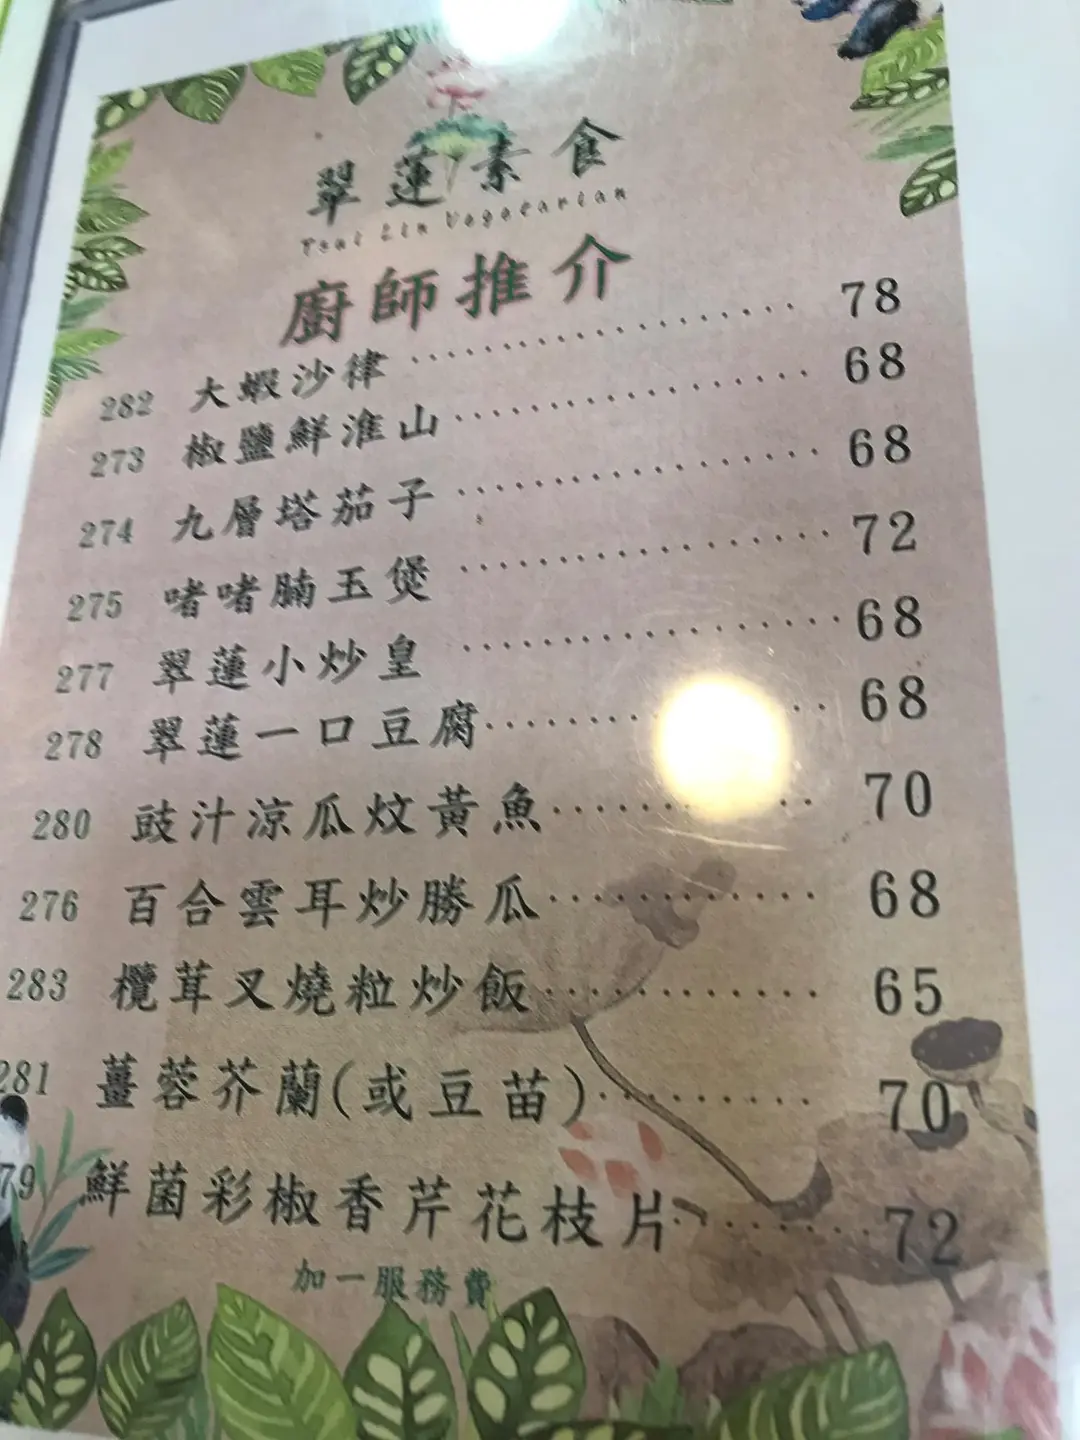 翠蓮素食
Tsui Lin Vegetarian
廚師推介
282 大蝦沙律 78
273 椒鹽鮮淮山 68
274 九層塔茄子 68
275 啫啫腩玉煲 72
277 翠蓮小炒皇 68
278 翠蓮一口豆腐 68
280 豉汁涼瓜炆黃魚 70
276 百合雲耳炒勝瓜 68
283 欖茸叉燒粒炒飯 65
281 薑蓉芥蘭(或豆苗) 70
79 鮮菌彩椒香芹花枝片 72
加一服務費